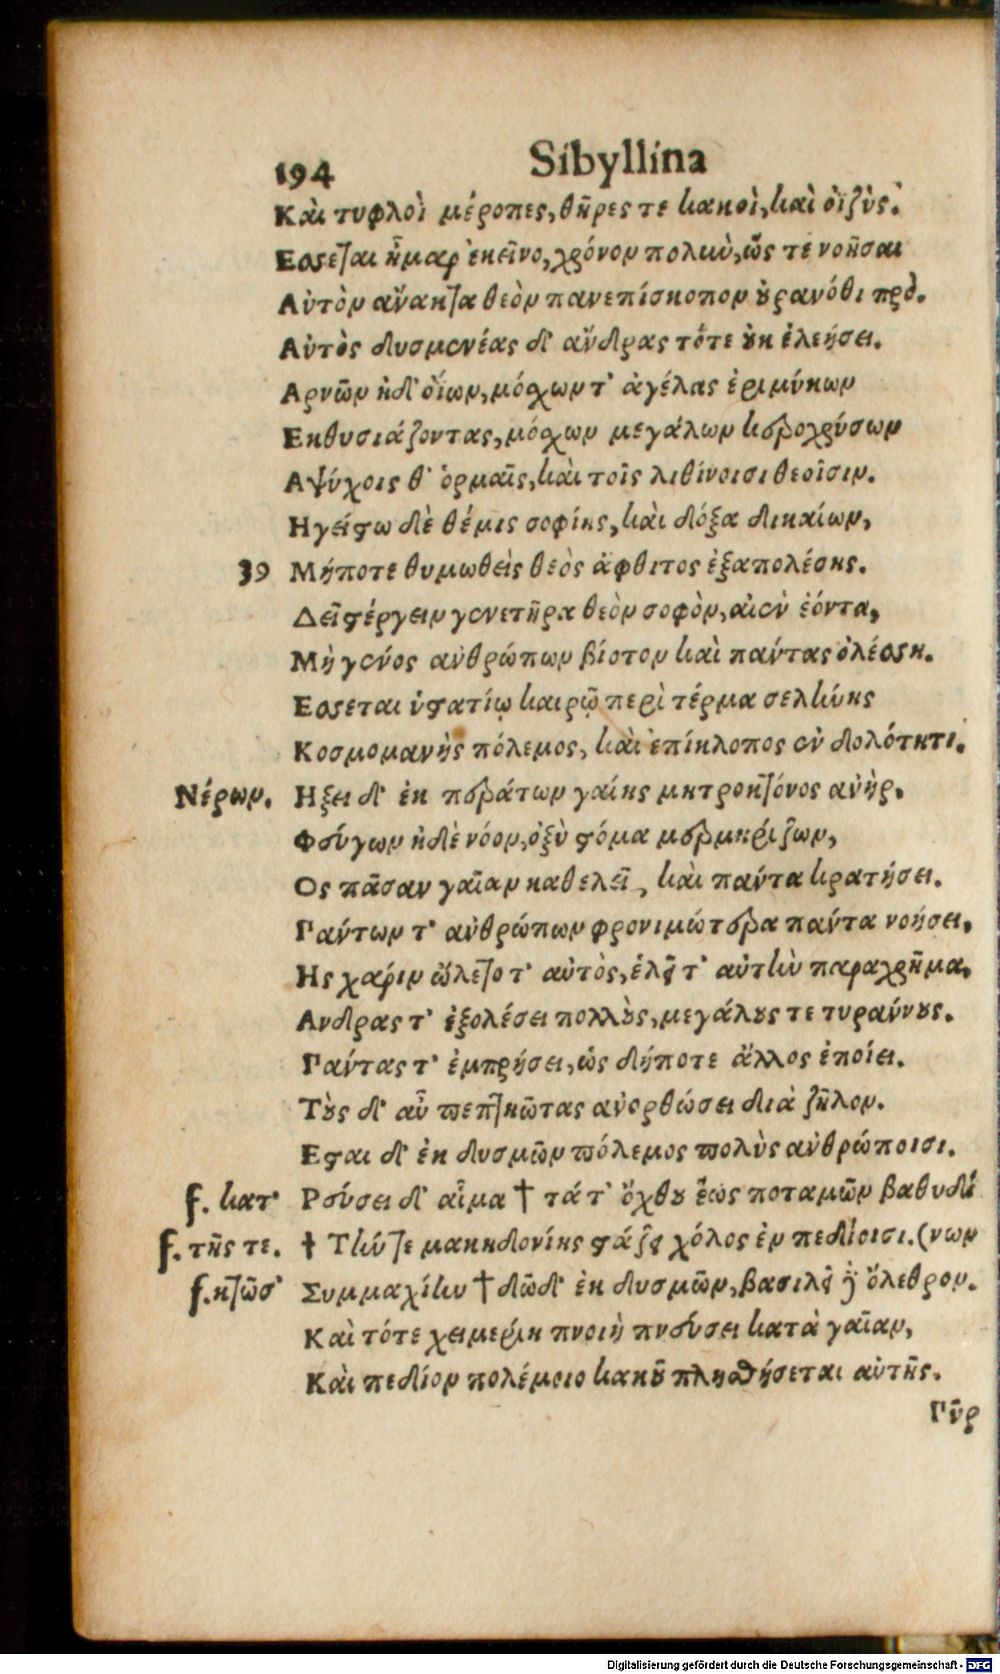 194 Sibyllina
Καὶ τυφλοὶ μέροπες, θῆρες τε κακοὶ, καὶ ὀϊζύς.
Εσεται ἦμαρ ἐκεῖνο, χρόνον πολιὺ, ὥς τε νοῆσαι
Αὐτὸν ἄνακτα θεὸν πανεπίσκοπον οὐρανόθι πρό.
Αὐτὸς δυσμενέας δ' ἄνδρας τότε οὐκ ἐλεήσει.
Αρνῶν ἠδ' ὀΐων, μόσχων τ' ἀγέλας ἐριμύκων
Εκθυσιάζοντας, μόσχων μεγάλων κεροχρύσων
Αψύχοις θ' ὁρμαῖς, καὶ τοῖς λιθίνοισι θεοῖσιν.
Ηγείσθω δὲ θέμις σοφίης, καὶ δόξα δικαίων,
39 Μήποτε θυμωθεὶς θεὸς ἄφθιτος ἐξαπολέσης.
Δεῖ στέργειν γενετῆρα θεὸν σοφὸν, αἰὲν ἐόντα,
Μὴ γένος ἀνθρώπων βίοτον καὶ πάντας ὀλέσσῃ.
Εσσεται ὑστατίῳ καιρῷ περὶ τέρμα σελήνης
Κοσμομανὴς πόλεμος, καὶ ἐπίκλοπος ἐν δολότητι.
Νέρων. Ηξει δ' ἐκ περάτων γαίης μητροκτόνος ἀνὴρ.
Φεύγων ἠδὲ νόον, ὀξὺ στόμα μερμηρίζων,
Ος πᾶσαν γαῖαν καθελεῖ, καὶ πάντα κρατήσει.
Γαάντων τ' ἀνθρώπων φρονιμώτερα πάντα νοήσει.
Ης χάριν ὤλετο τ' αὐτὸς, ἑλεῖ τ' αὐτὴν παραχρῆμα.
Ανδρας τ' ἐξολέσει πολλοὺς, μεγάλους τε τυράννους.
Πάντας τ' ἐμπρήσει, ὡς δήποτε ἄλλος ἐποίει.
Τοὺς δ' αὖ πεπτηκῶτας ἀνορθώσει διὰ ζῆλον.
Εσται δ' ἐκ δυσμῶν πόλεμος πολὺς ἀνθρώποισι.
f. κατ' Ρεύσει δ' αἷμα † τάτ' ὄχθου ἕως ποταμῶν βαθυδί
f. τῆς τε. † Τήν τε μακηδονίης στάζει χόλος ἐν πεδίοισι. (νων
f. κτῶσ' Συμμαχίην † δῶδ' ἐκ δυσμῶν, βασιλεῖ δὲ ὄλεθρον.
Καὶ τότε χειμερίη πνοιὴ πνεύσει κατὰ γαῖαν,
Καὶ πεδίον πολέμοιο κακοῦ πλησθήσεται αὐτῆς.
Γῦρ
Digitalisierung gefördert durch die Deutsche Forschungsgemeinschaft - DFG